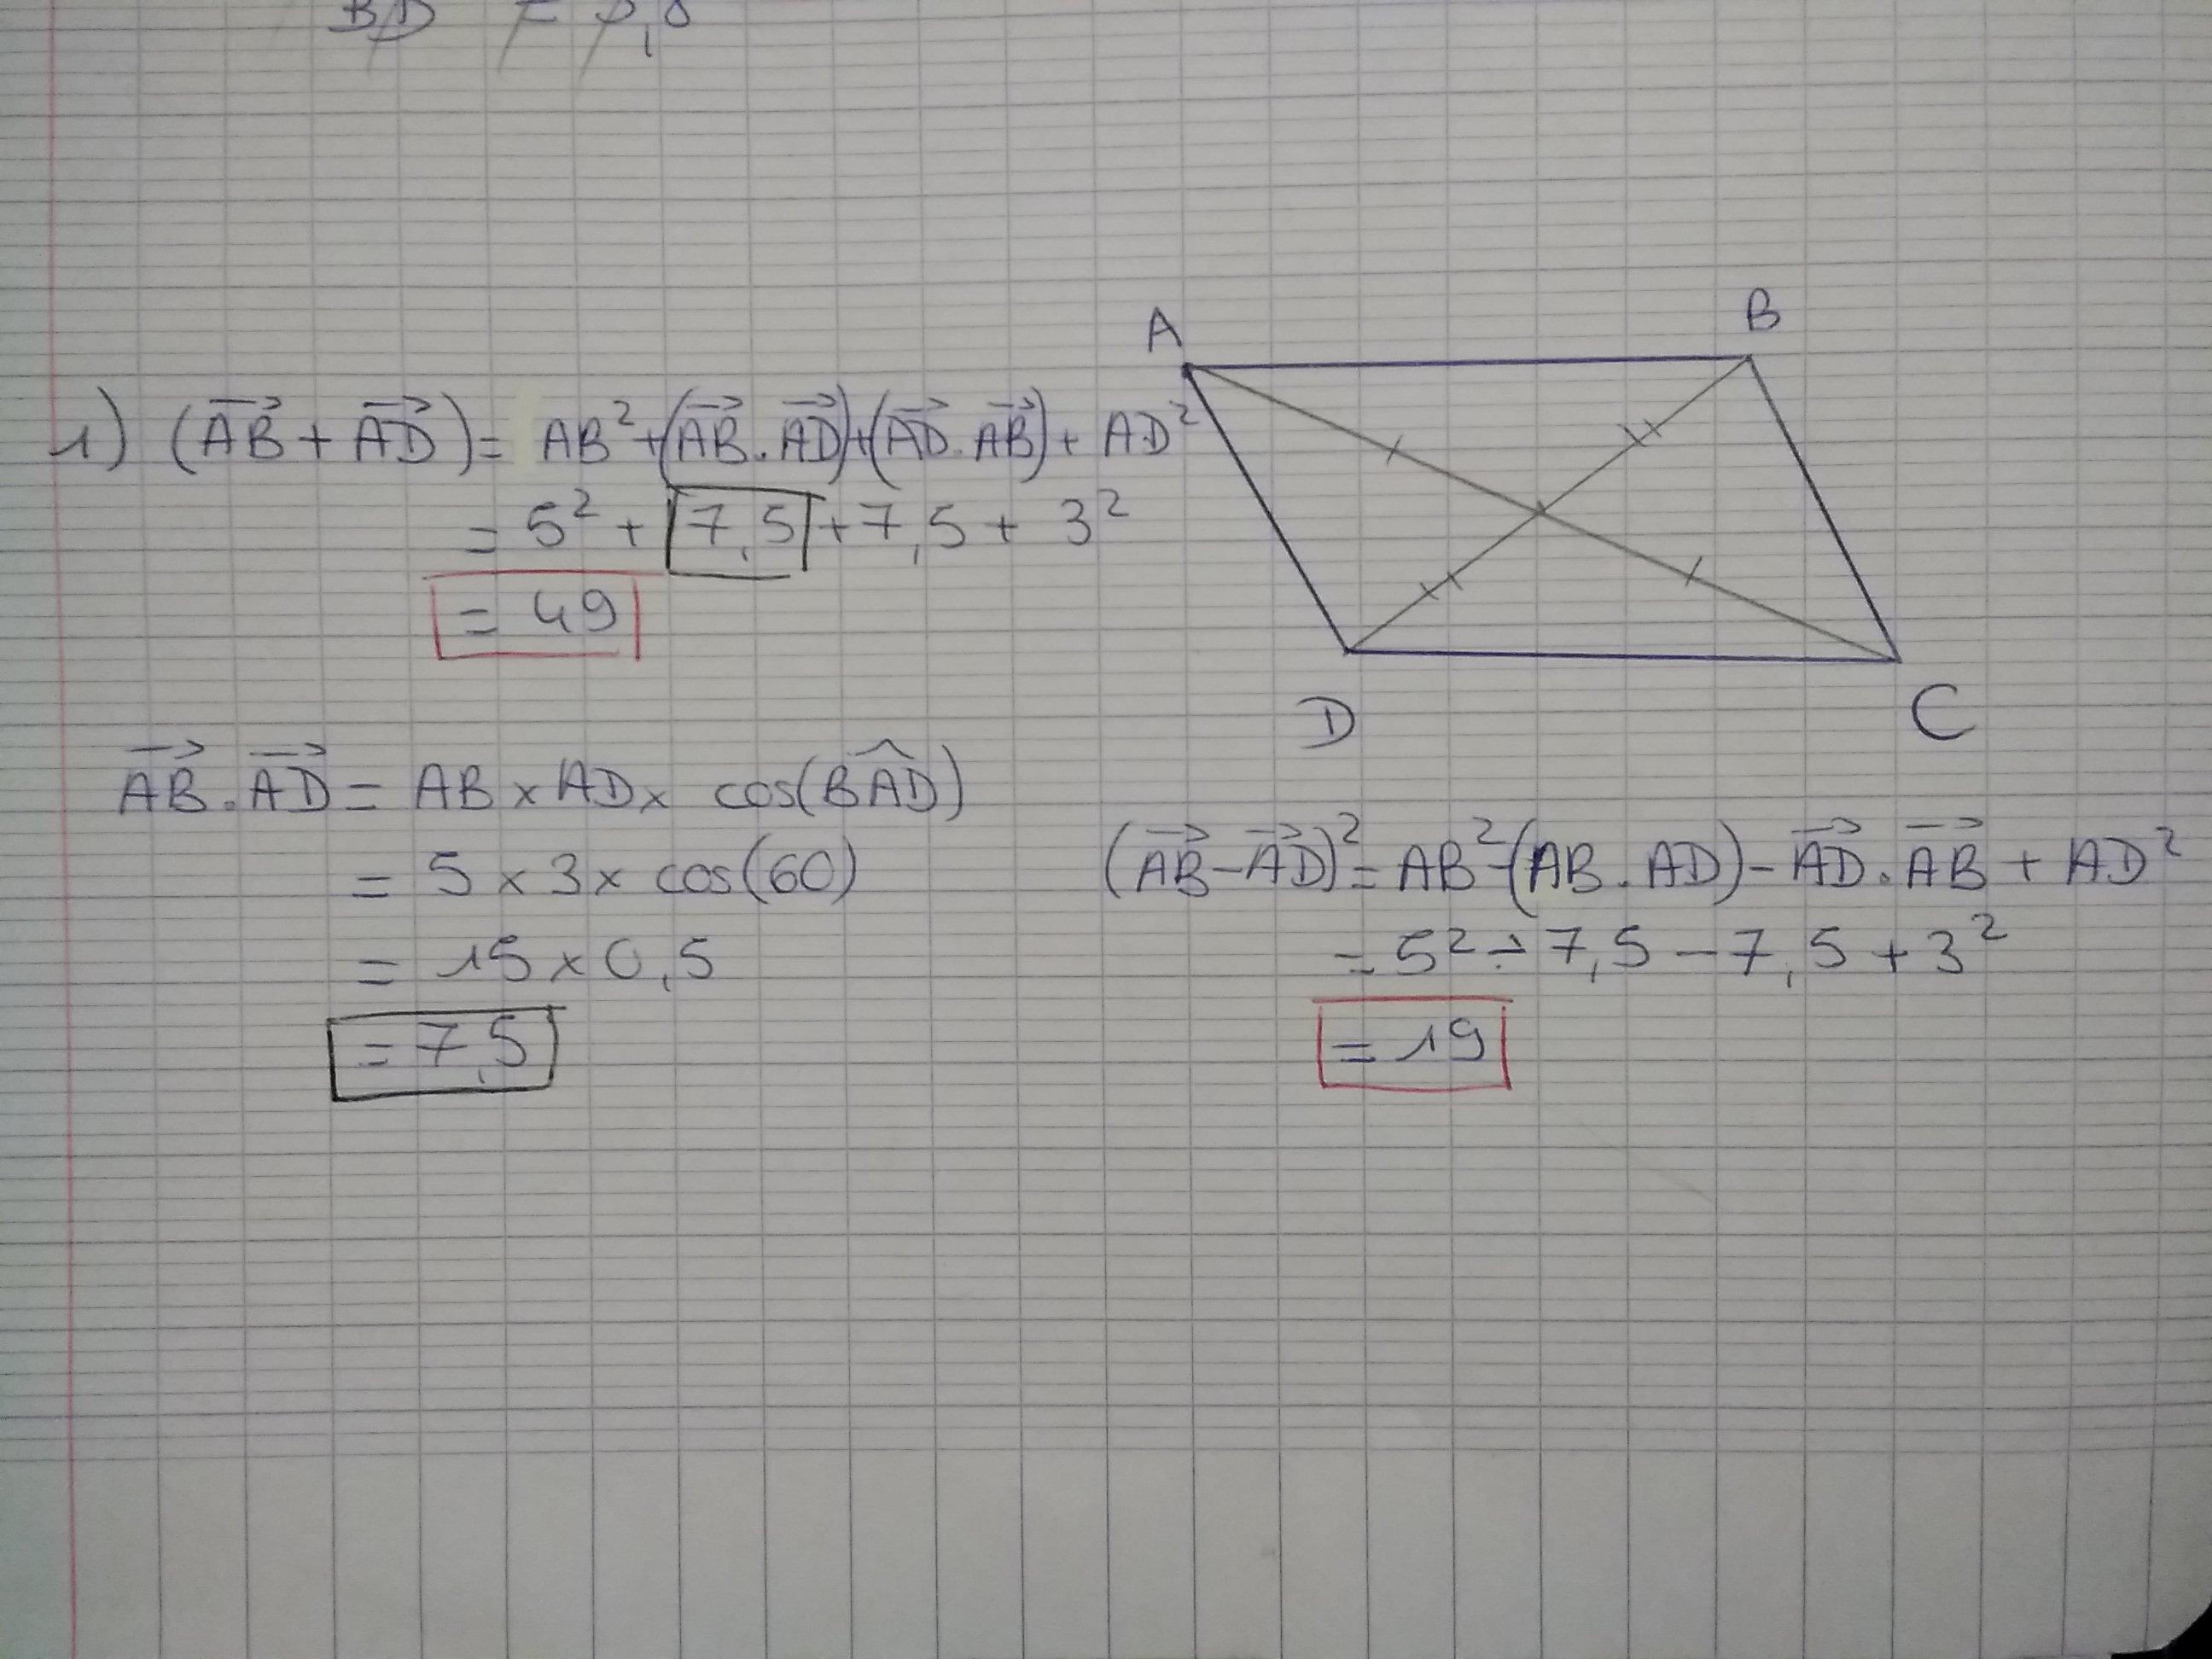 BD =
A
B
1) (AB + AD) = AB² + (AB . AD) + (AD . AB) + AD²
= 5² + 7,5 + 7,5 + 3²
= 49
D
C
AB . AD = AB × AD × cos(BAD)
= 5 × 3 × cos(60)
= 15 × 0,5
= 7,5
(AB - AD)² = AB² - (AB . AD) - AD . AB + AD²
= 5² - 7,5 - 7,5 + 3²
= 19